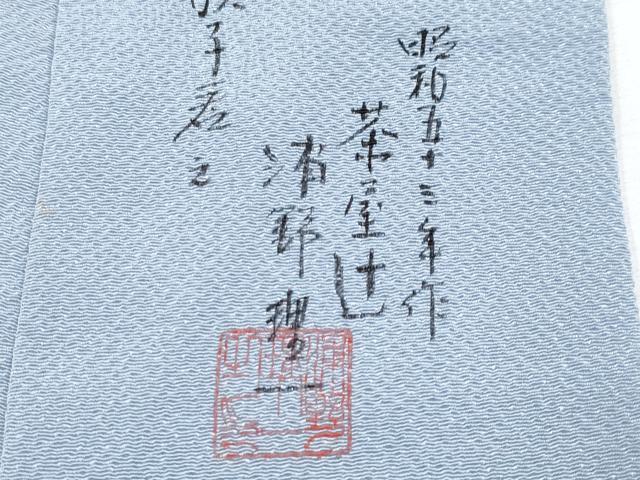 昭和五十三年作
茶屋辻
浦野理一
子
之